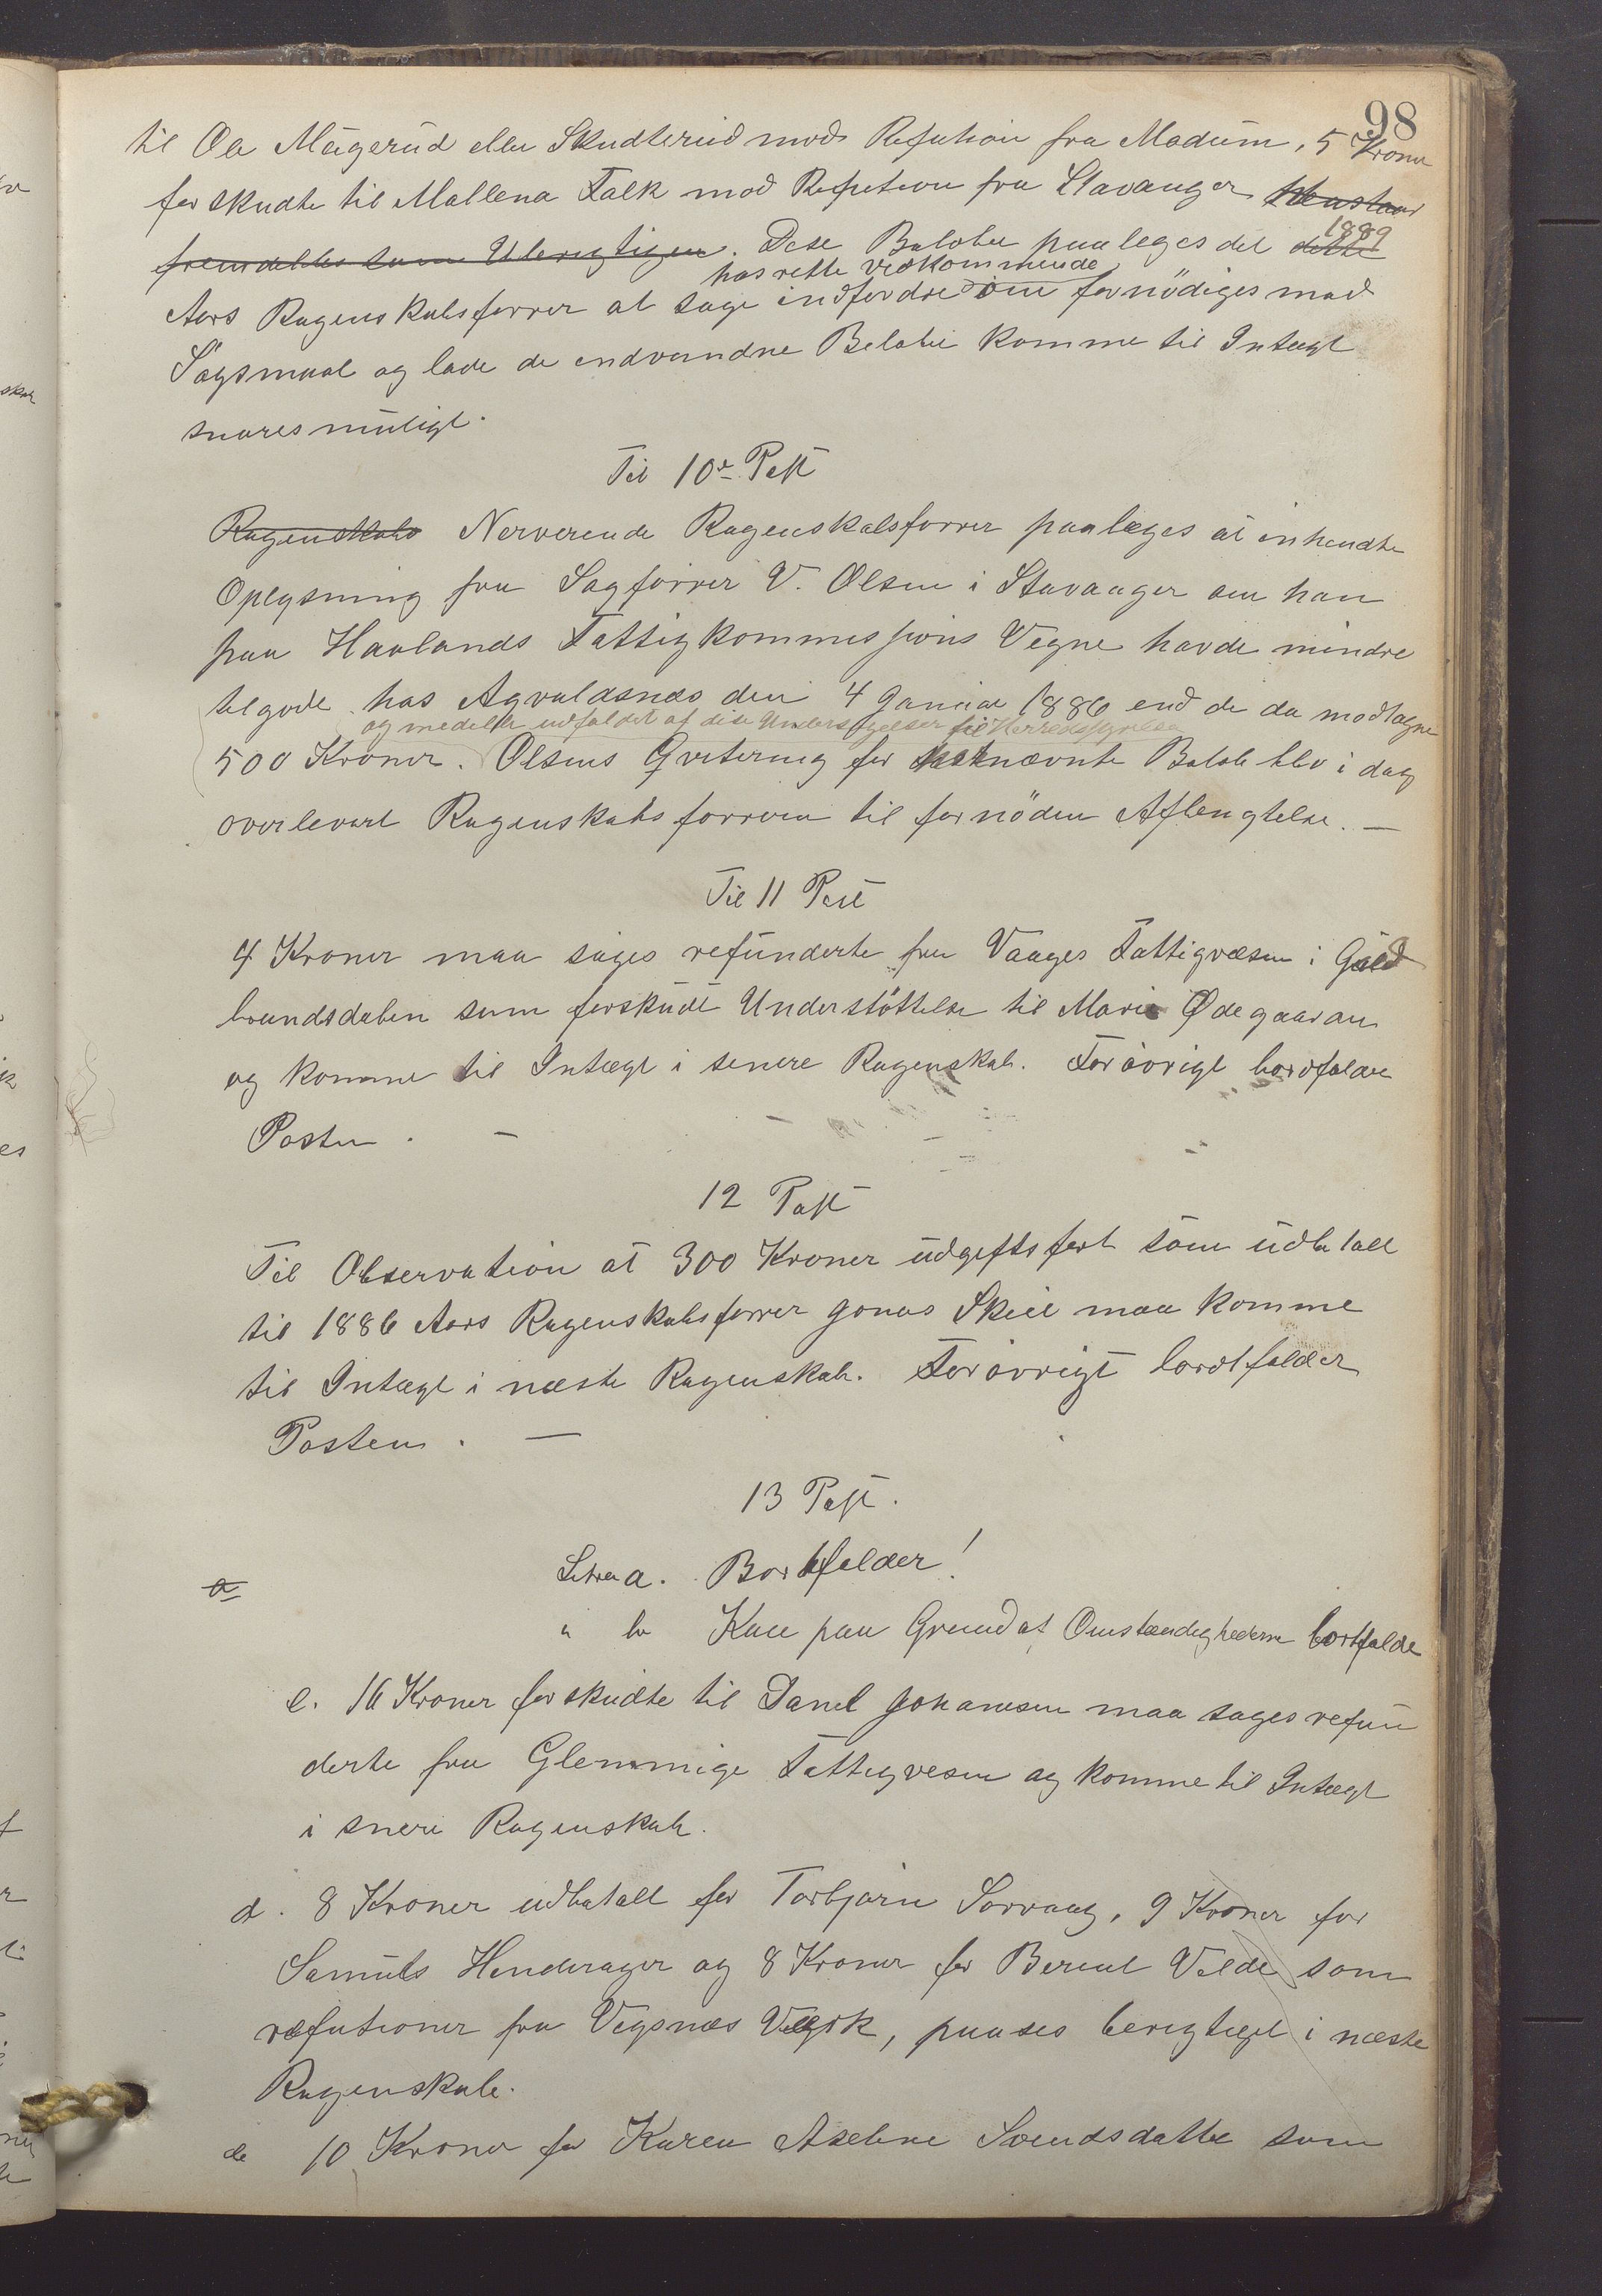 98
til Ole Mugerud eller Skudterud mods Refution fra Modum, 5 Kroner
forskudte til Mallena Falk mod Refution fra Stavanger
fremdeles som Uberigtigen. Dese Beløbe paaleges det dette 1889
hos rette vedkommende
Aars Regenskabsforrer at søge indfordre om fornödiges mod
Sögsmaal og lade de indvundne Beløbe komme til Intægt
snares muligt.
Til 10de Post
Regenskabs Nerverende Regenskabsforrer paalæges at inhendte
Oplysning fra Sagförrer V. Olsen i Stavanger om han
paa Haalands Fattigkommisjions Vegne havde mindre
tilgode hos Agvaldsnæs den 4 Januar 1886 end de da modtagne
og meddelle udfaldet af dise Undersøgelser til Herredsstyrelse
500 Kroner. Olsens Qvitering for nævnte Beløb blev i dag
overlevert Regenskabsforreren til fornöden Aflengtelse. —
Til 11 Post
4 Kroner maa søges refunderte fra Vaages Fattigvæsen i Guld
brandsdalen som forskudt Understöttelse til Marie Ødegaarden
og komme til Intægt i senere Regenskab. Forövrigt bordfalder
Posten. —
12 Post
Til Observation at 300 Kroner udgiftsført som udbetalt
til 1886 Aars Regenskabsforrer Jonas Skeie maa komme
til Intægt i næste Regenskab. Forövrigt bordtfalder
Posten. —
13 Post.
a Litra a. Bortfalder!
" b Kan paa Grund af Omstændighederne bortfalde
c. 16 Kroner forskudte til Danel Johanesen maa søges refun
derte fra Glemmige Fattigvesen og komme til Intægt
i snere Regenskab.
d. 8 Kroner udbetalt for Torbjørn Sørvaag, 9 Kroner for
Samuels Hendrager og 8 Kroner for Berent Velde som
refutioner fra Vigsnæs Værk, paases berigtiget i næste
Regenskab.
de 10 Kroner for Karen Aseline Svendsdatter som